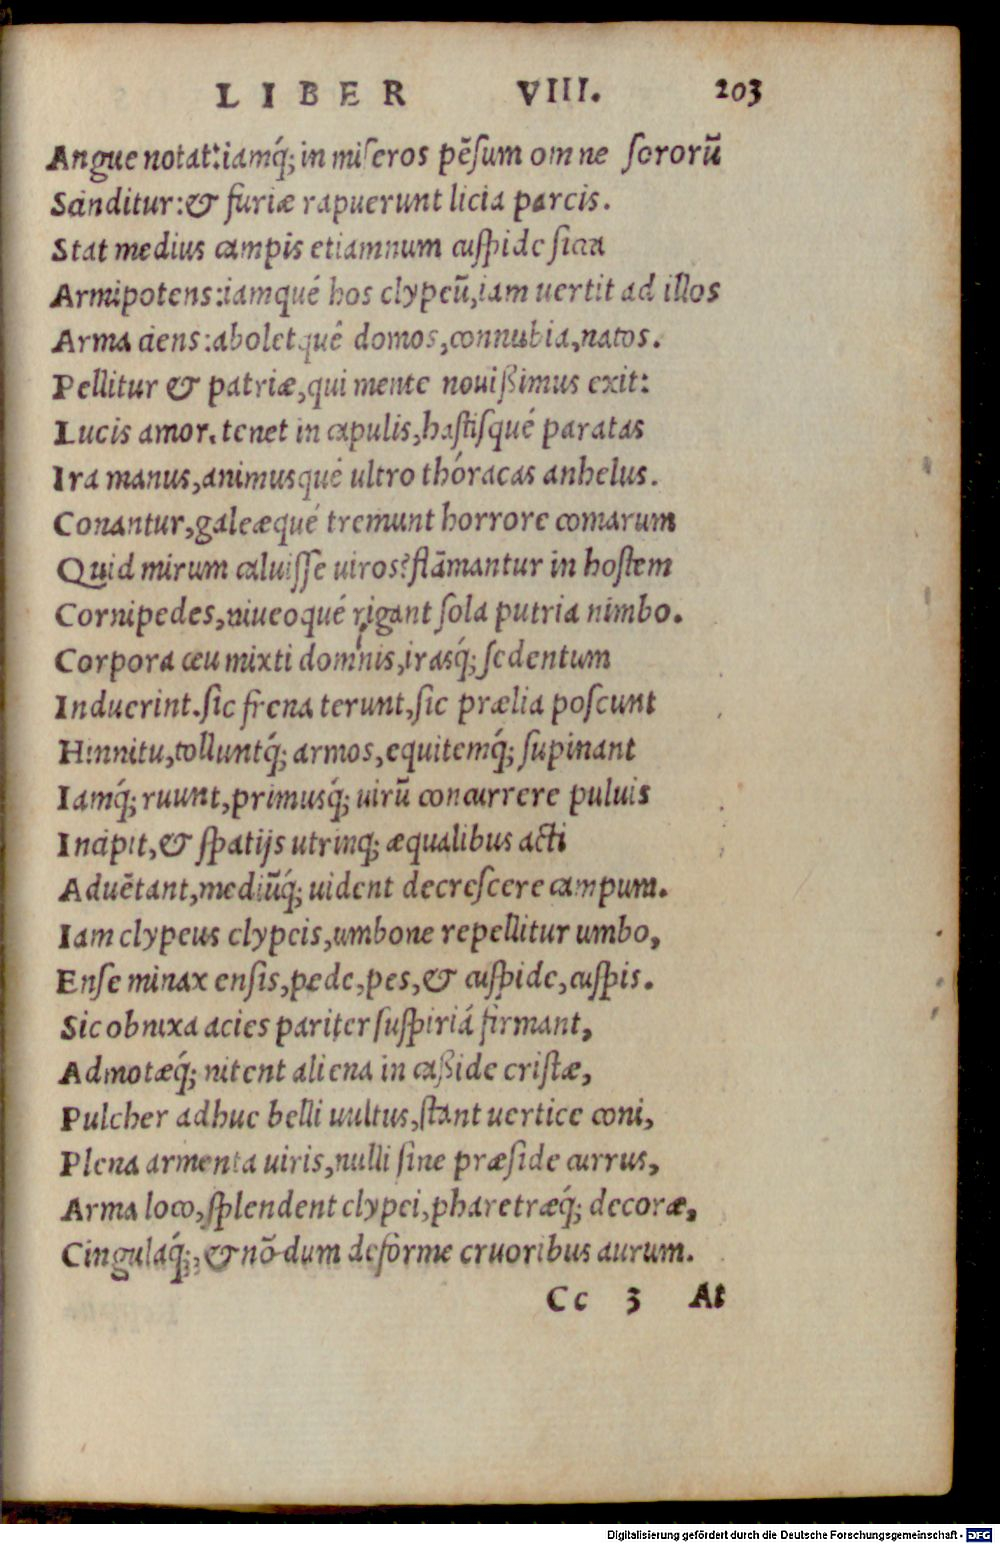 LIBER VIII. 203
Angue notat: iamq́; in miseros pẽsum omne sororũ
Scinditur: & furiæ rapuerunt licia parcis.
Stat medius campis etiamnum cuspide sicca
Armipotens: iamqué hos clypeũ, iam uertit ad illos
Arma ciens: aboletqué domos, connubia, natos.
Pellitur & patriæ, qui mente nouißimus exit:
Lucis amor. tenet in capulis, hastisqué paratas
Ira manus, animusqué ultro thóracas anhelus.
Conantur, galeæqué tremunt horrore comarum
Quid mirum caluisse uiros? flãmantur in hostem
Cornipedes, niueoqué rigant sola putria nimbo.
Corpora ceu mixti dominis, irasq́; sedentum
Induerint. sic frena terunt, sic prælia poscunt
Hinnitu, tolluntq́; armos, equitemq́; supinant
Iamq́; ruunt, primusq́; uirũ concurrere puluis
Incipit, & spatijs utrinq; æqualibus acti
Aduẽtant, mediũq́; uident decrescere campum.
Iam clypeus clypeis, umbone repellitur umbo,
Ense minax ensis, pede, pes, & cuspide, cuspis.
Sic obnixa acies pariter suspiriá firmant,
Admotæq́; nitent aliena in caßide cristæ,
Pulcher adhuc belli uultus, stant uertice coni,
Plena armenta uiris, nulli sine præside currus,
Arma loco, splendent clypei, pharetræq́; decoræ,
Cingulaq́;, & nõ dum deforme cruoribus aurum.
Cc 3 At
Digitalisierung gefördert durch die Deutsche Forschungsgemeinschaft - DFG